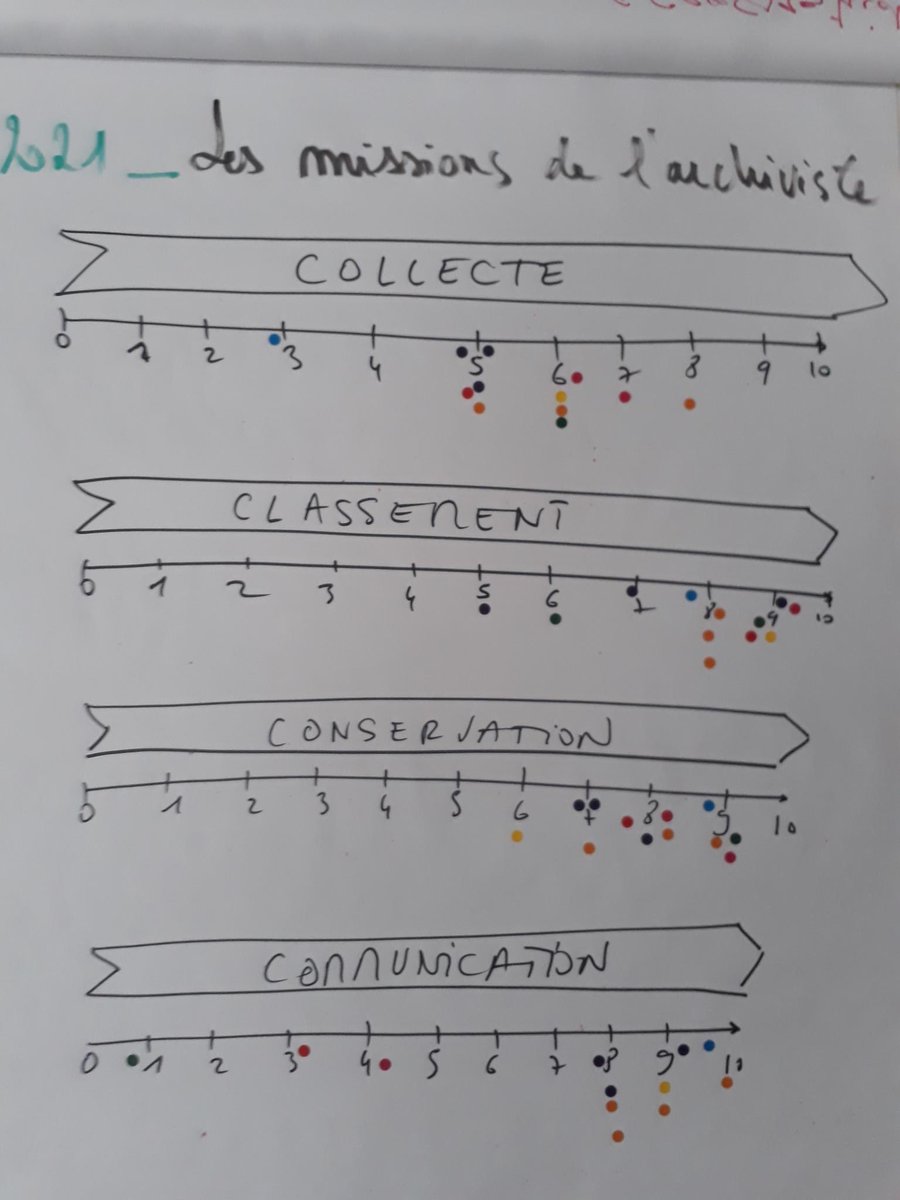 2021_Les missions de l'archiviste
COLLECTE
0 1 2 3 4 5 6 7 8 9 10
CLASSEMENT
0 1 2 3 4 5 6 7 8 9 10
CONSERVATION
0 1 2 3 4 5 6 7 8 9 10
COMMUNICATION
0 1 2 3 4 5 6 7 8 9 10